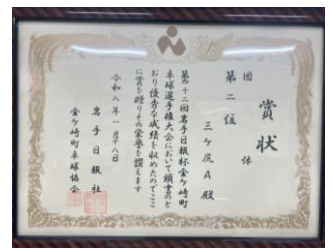 賞状
団体
第二位
三ケ尻A殿
第十二回岩手日報杯金ケ崎町
卓球選手権大会において頭書のと
おり優秀な成績を収めたのでここ
に賞を贈りその栄誉を讃えます
令和八年一月十八日
岩手日報社
金ケ崎町卓球協会